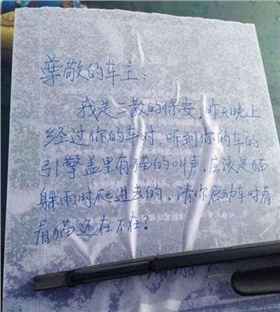 尊敬的车主：
我是二教的保安，昨天晚上
经过你的车时，听到你的车的
引擎盖里有猫的叫声，应该是猫
躲雨时爬进去的，请你启动车时看
看猫还在不在？